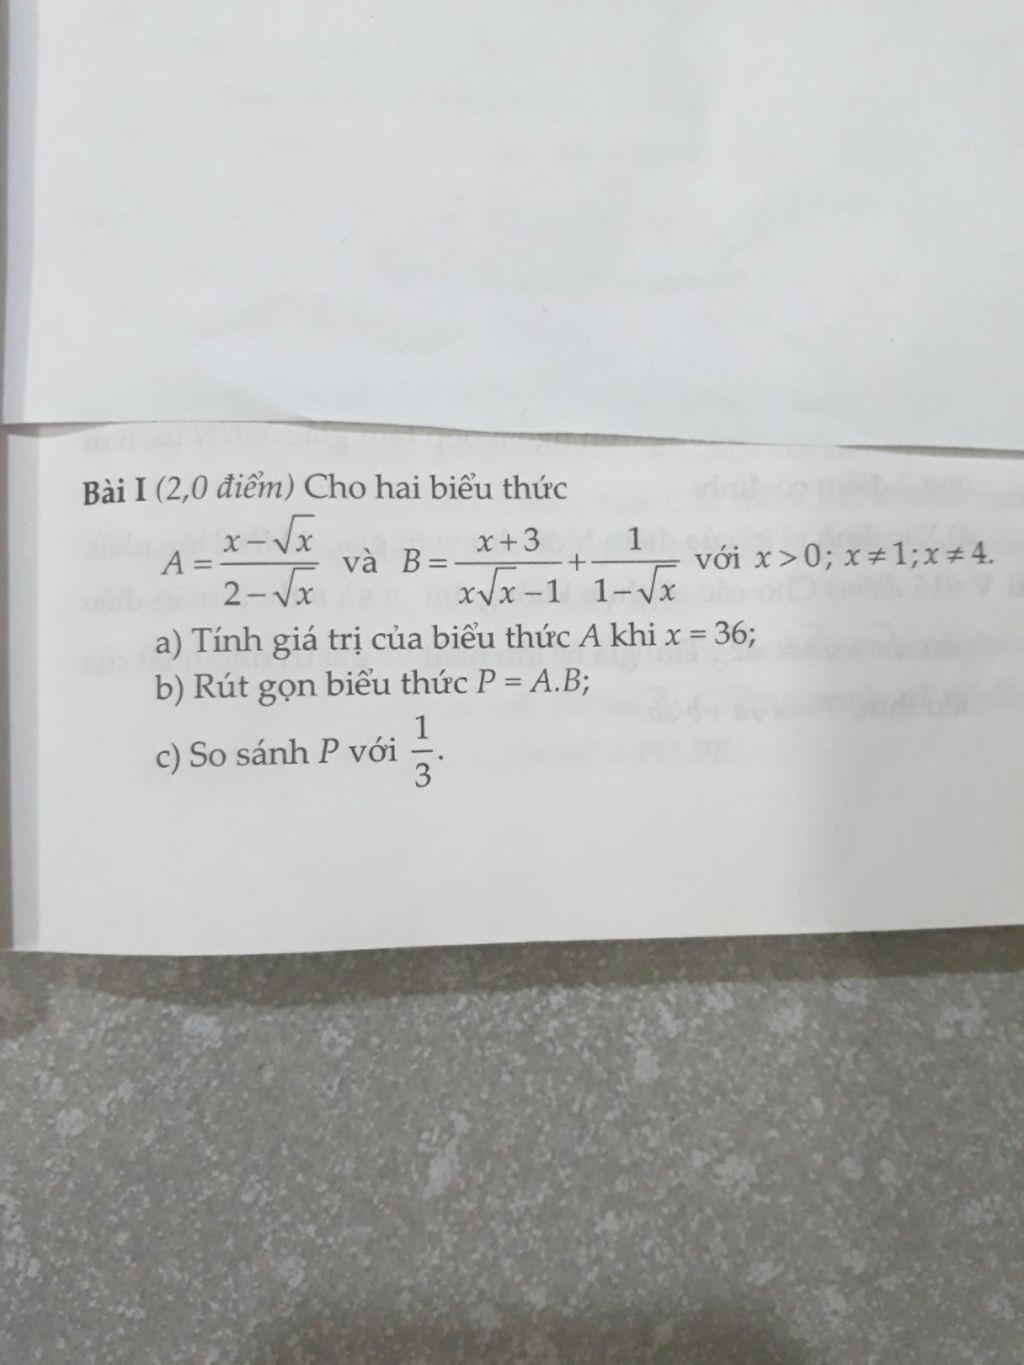 Bài I (2,0 điểm) Cho hai biểu thức
A = \frac{x-\sqrt{x}}{2-\sqrt{x}} và B = \frac{x+3}{x\sqrt{x}-1} + \frac{1}{1-\sqrt{x}} với x > 0; x ≠ 1; x ≠ 4.
a) Tính giá trị của biểu thức A khi x = 36;
b) Rút gọn biểu thức P = A.B;
c) So sánh P với \frac{1}{3}.